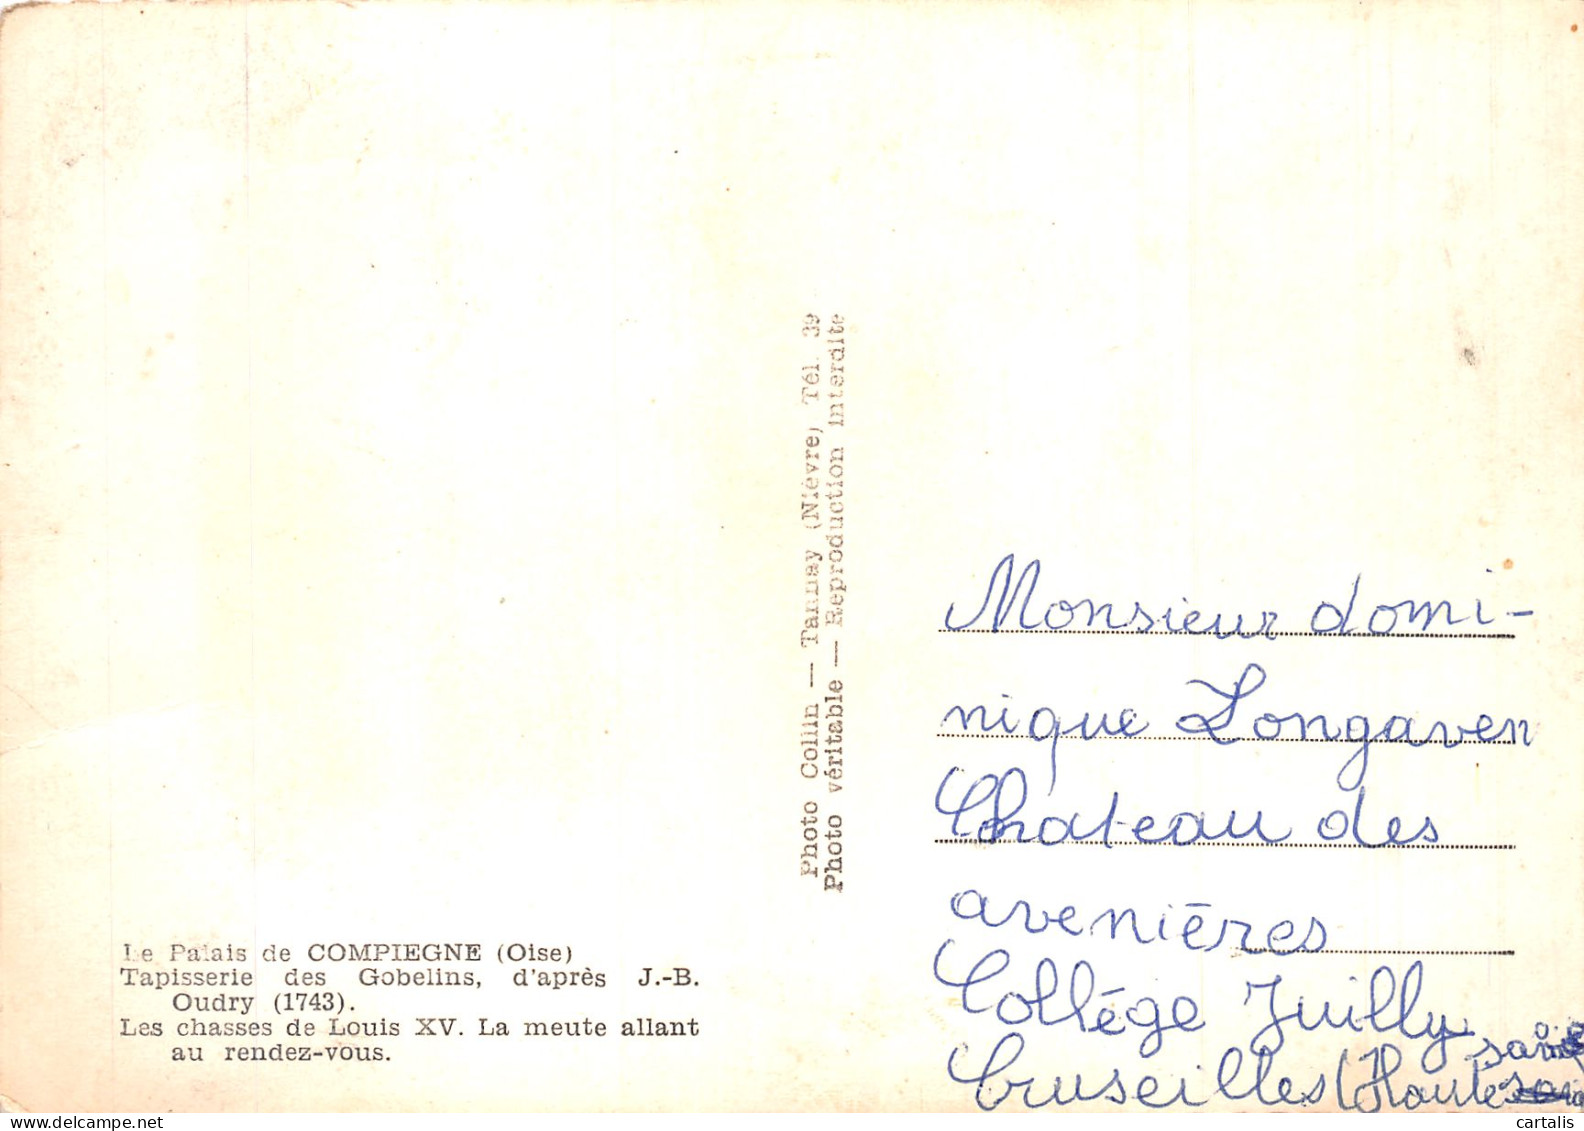 Le Palais de COMPIEGNE (Oise)
Tapisserie des Gobelins, d'après J.-B.
Oudry (1743).
Les chasses de Louis XV. La meute allant
au rendez-vous.
Photo Collin — Tannay (Nièvre) Tél. 39
Photo véritable — Reproduction interdite
Monsieur domi-
nique Longaven
Chateau des
avenières
Collége Juilly
Cruseilles (Haute
cartalis